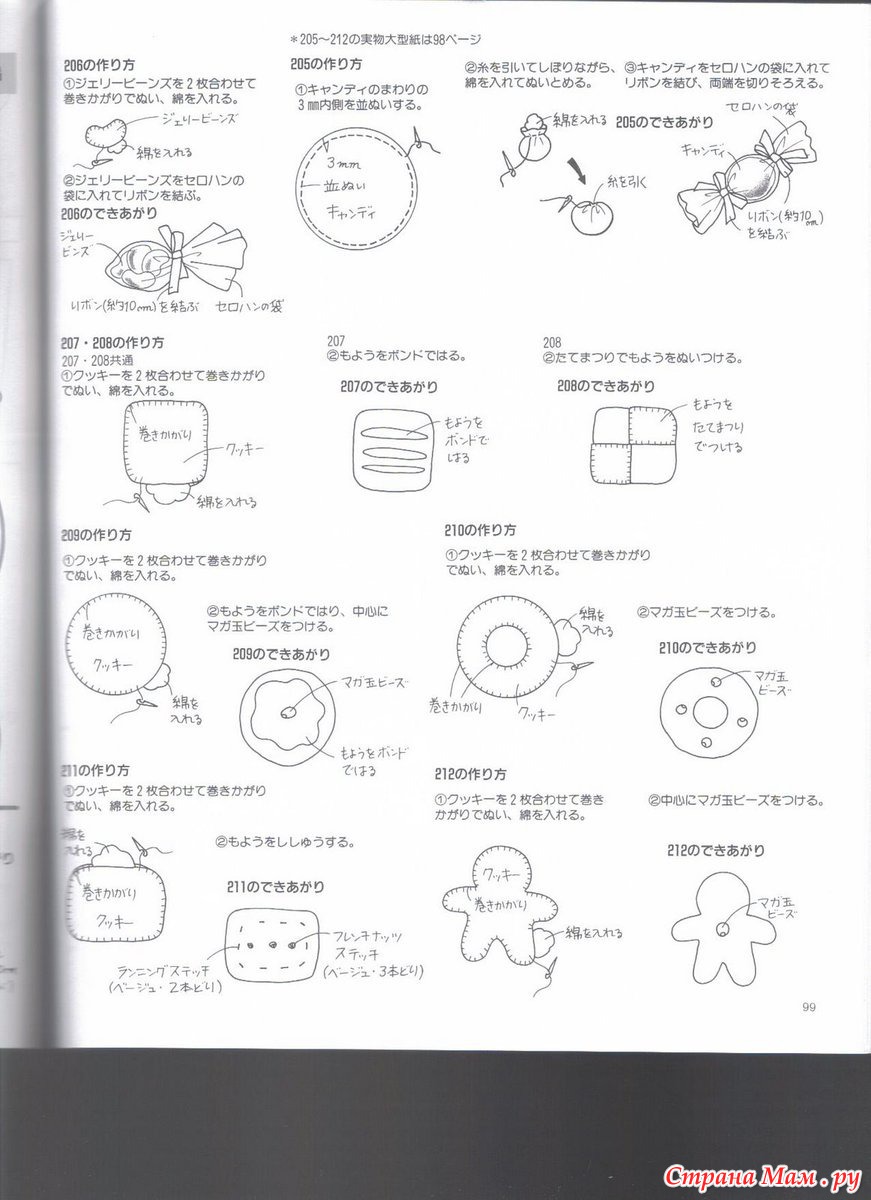 *205〜212の実物大型紙は98ページ
206の作り方
①ジェリービーンズを2枚合わせて
巻きかがりでぬい、綿を入れる。
ジェリービーンズ
綿を入れる
②ジェリービーンズをセロハンの
袋に入れてリボンを結ぶ。
206のできあがり
ジェリー
ビンズ
リボン(約10cm)を結ぶ
セロハンの袋
205の作り方
①キャンディのまわりの
3mm内側を並ぬいする。
3mm
並ぬい
キャンディ
②糸を引いてしぼりながら、
綿を入れてぬいとめる。
綿を入れる
糸を引く
③キャンディをセロハンの袋に入れて
リボンを結び、両端を切りそろえる。
205のできあがり
セロハンの袋
キャンディ
リボン(約10cm)
を結ぶ
207・208の作り方
207・208共通
①クッキーを2枚合わせて巻きかがり
でぬい、綿を入れる。
巻きかがり
クッキー
綿を入れる
207
②もようをボンドではる。
207のできあがり
もようを
ボンドで
はる
208
②たてまつりでもようをぬいつける。
208のできあがり
もようを
たてまつり
でつける
209の作り方
①クッキーを2枚合わせて巻きかがり
でぬい、綿を入れる。
巻きかがり
クッキー
綿を
入れる
②もようをボンドではり、中心に
マガ玉ビーズをつける。
209のできあがり
マガ玉ビーズ
もようをボンド
ではる
210の作り方
①クッキーを2枚合わせて巻きかがり
でぬい、綿を入れる。
綿を
入れる
巻きかがり
クッキー
②マガ玉ビーズをつける。
210のできあがり
マガ玉
ビーズ
211の作り方
①クッキーを2枚合わせて巻きかがり
でぬい、綿を入れる。
綿を
入れる
巻きかがり
クッキー
②もようをししゅうする。
211のできあがり
ランニングステッチ
(ベージュ・2本どり)
フレンチナッツ
ステッチ
(ベージュ・3本どり)
212の作り方
①クッキーを2枚合わせて巻き
かがりでぬい、綿を入れる。
クッキー
巻きかがり
綿を入れる
②中心にマガ玉ビーズをつける。
212のできあがり
マガ玉
ビーズ
99
Страна Мам.ру